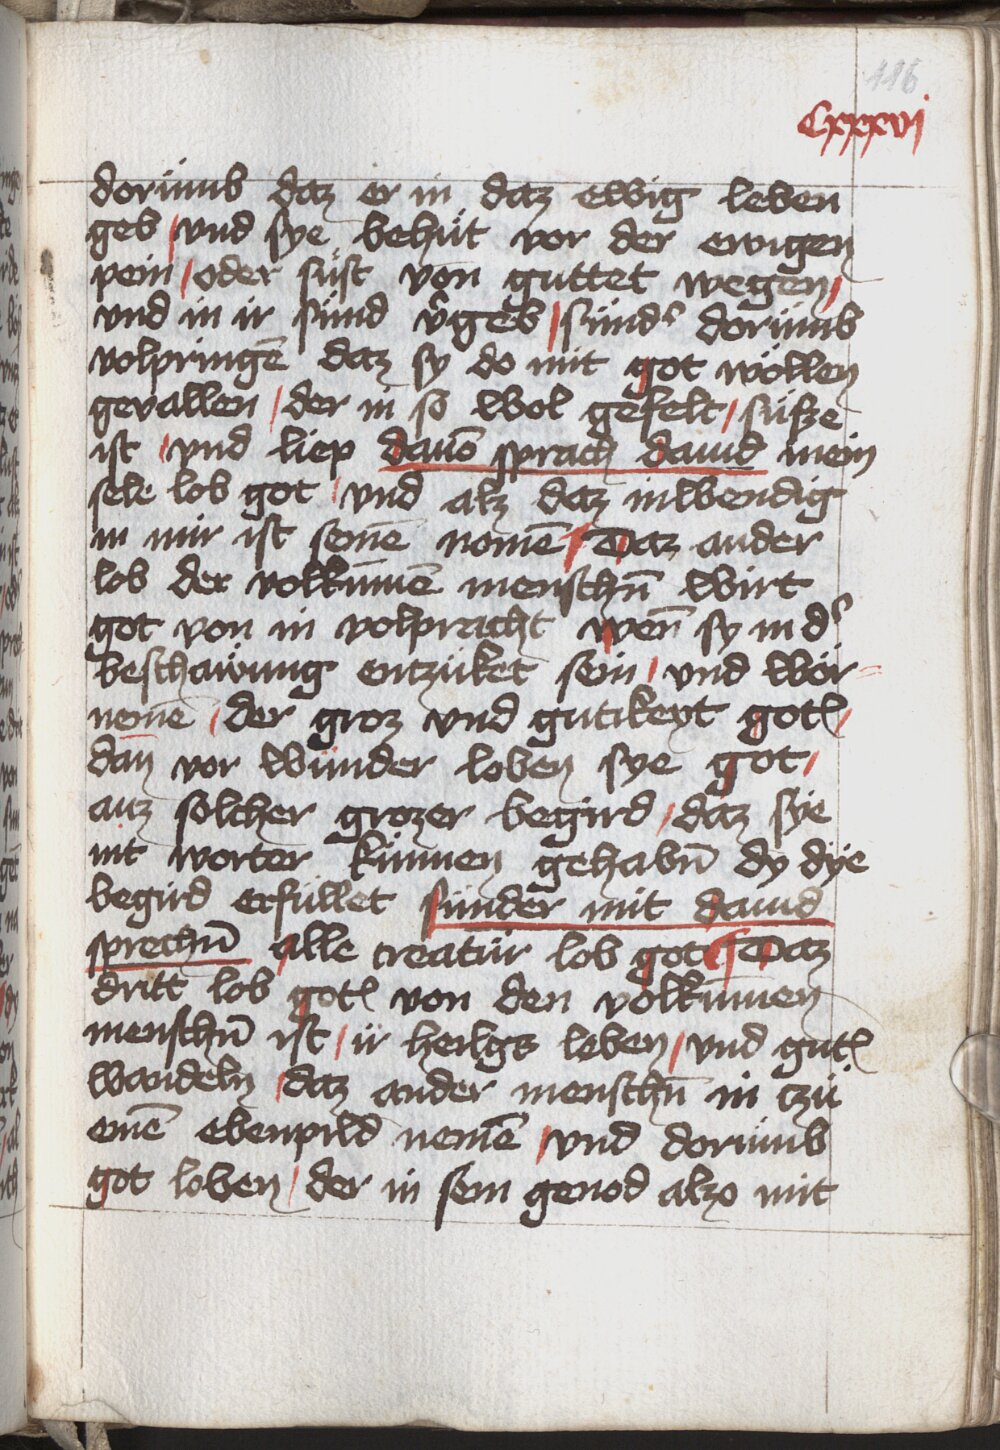 116
Cxxxvj
dorumb daz er in daz ewig leben
geb / vnd sye behüt vor der ewigen
pein / oder süst von guttet wegen /
vnd in ir sünd v̂geb / sünd͛ dorumb
volpringē daz sy do mit got wöllen
gevallen / der in so wol gefelt / süsze
ist / vnd liep dauō sprach dauid mein
sele lob got / vnd alz daz inwendig
in mir ist seinē nomē / Daz ander
lob der volkūmē menschn̄ wirt
got von in volpracht wen̄ sy in d͛
beschawung entzüket sein / vnd wor=
nemē / der groz vnd gutikeyt gotz /
dan̄ vor wunder loben sye got /
auz solcher grozer begird / daz sye
nit worter kūnnen gehabn̄ dy dye
begird erfüllet sünder mit dauid
sprechn̄ alle creatür lob got Daz
dritt lob gotz von den volkūmen
menschn̄ ist / ir heilgs leben / vnd gutz
wandeln / daz ander menschn̄ in czü
einē ebenpild nemē / vnd dorumb
got loben / der in sein genod alzo mit